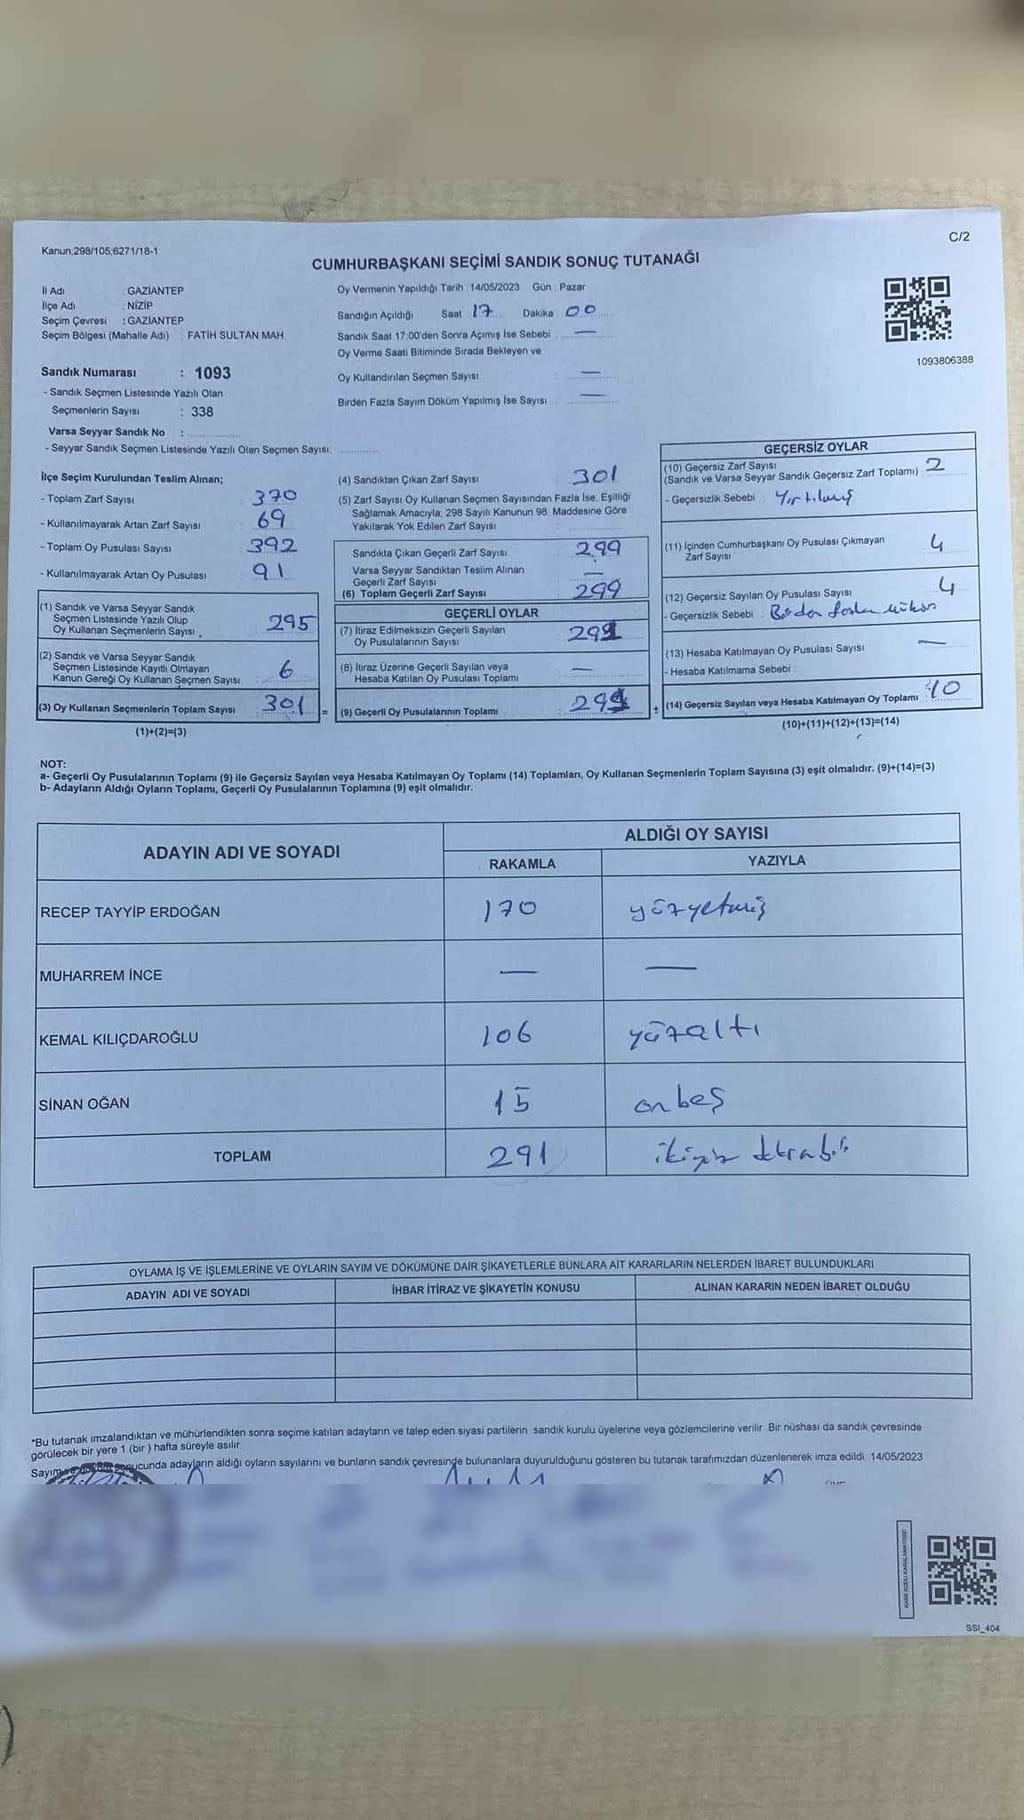 Kanun;298/105;6271/18-1
C/2
CUMHURBAŞKANI SEÇİMİ SANDIK SONUÇ TUTANAĞI
İl Adı : GAZİANTEP
İlçe Adı : NİZİP
Seçim Çevresi : GAZİANTEP
Seçim Bölgesi (Mahalle Adı) : FATİH SULTAN MAH.
Sandık Numarası : 1093
- Sandık Seçmen Listesinde Yazılı Olan
Seçmenlerin Sayısı : 338
Varsa Seyyar Sandık No :
- Seyyar Sandık Seçmen Listesinde Yazılı Olan Seçmen Sayısı:
Oy Vermenin Yapıldığı Tarih : 14/05/2023 Gün : Pazar
Sandığın Açıldığı Saat 17 Dakika 00
Sandık Saat 17:00'den Sonra Açımış İse Sebebi : —
Oy Verme Saati Bitiminde Sırada Bekleyen ve
Oy Kullandırılan Seçmen Sayısı —
Birden Fazla Sayım Döküm Yapılmış İse Sayısı —
1093806388
İlçe Seçim Kurulundan Teslim Alınan;
- Toplam Zarf Sayısı 370
- Kullanılmayarak Artan Zarf Sayısı 69
- Toplam Oy Pusulası Sayısı 392
- Kullanılmayarak Artan Oy Pusulası 91
(1) Sandık ve Varsa Seyyar Sandık
Seçmen Listesinde Yazılı Olup
Oy Kullanan Seçmenlerin Sayısı 295
(2) Sandık ve Varsa Seyyar Sandık
Seçmen Listesinde Kayıtlı Olmayan
Kanun Gereği Oy Kullanan Seçmen Sayısı 6
(3) Oy Kullanan Seçmenlerin Toplam Sayısı 301 =
(1)+(2)=(3)
(4) Sandıktan Çıkan Zarf Sayısı 301
(5) Zarf Sayısı Oy Kullanan Seçmen Sayısından Fazla İse, Eşitliği
Sağlamak Amacıyla, 298 Sayılı Kanunun 98. Maddesine Göre
Yakılarak Yok Edilen Zarf Sayısı
Sandıkta Çıkan Geçerli Zarf Sayısı 299
Varsa Seyyar Sandıktan Teslim Alınan
Geçerli Zarf Sayısı —
(6) Toplam Geçerli Zarf Sayısı 299
GEÇERLİ OYLAR
(7) İtiraz Edilmeksizin Geçerli Sayılan
Oy Pusulalarının Sayısı 291
(8) İtiraz Üzerine Geçerli Sayılan veya
Hesaba Katılan Oy Pusulası Toplamı —
(9) Geçerli Oy Pusulalarının Toplamı 291 +
GEÇERSİZ OYLAR
(10) Geçersiz Zarf Sayısı
(Sandık ve Varsa Seyyar Sandık Geçersiz Zarf Toplamı) 2
- Geçersizlik Sebebi : Yırtılmış
(11) İçinden Cumhurbaşkanı Oy Pusulası Çıkmayan
Zarf Sayısı 4
(12) Geçersiz Sayılan Oy Pusulası Sayısı 4
- Geçersizlik Sebebi : Birden fazla mühür
(13) Hesaba Katılmayan Oy Pusulası Sayısı —
- Hesaba Katılmama Sebebi :
(14) Geçersiz Sayılan veya Hesaba Katılmayan Oy Toplamı 10
(10)+(11)+(12)+(13)=(14)
NOT:
a- Geçerli Oy Pusulalarının Toplamı (9) ile Geçersiz Sayılan veya Hesaba Katılmayan Oy Toplamı (14) Toplamları, Oy Kullanan Seçmenlerin Toplam Sayısına (3) eşit olmalıdır. (9)+(14)=(3)
b- Adayların Aldığı Oyların Toplamı, Geçerli Oy Pusulalarının Toplamına (9) eşit olmalıdır.
ADAYIN ADI VE SOYADI
ALDIĞI OY SAYISI
RAKAMLA YAZIYLA
RECEP TAYYİP ERDOĞAN 170 yüzyetmiş
MUHARREM İNCE — —
KEMAL KILIÇDAROĞLU 106 yüzaltı
SİNAN OĞAN 15 onbeş
TOPLAM 291 ikiyüz
OYLAMA İŞ VE İŞLEMLERİNE VE OYLARIN SAYIM VE DÖKÜMÜNE DAİR ŞİKAYETLERLE BUNLARA AİT KARARLARIN NELERDEN İBARET BULUNDUKLARI
ADAYIN ADI VE SOYADI İHBAR İTİRAZ VE ŞİKAYETİN KONUSU ALINAN KARARIN NEDEN İBARET OLDUĞU
*Bu tutanak imzalandıktan ve mühürlendikten sonra seçime katılan adayların ve talep eden siyasi partilerin sandık kurulu üyelerine veya gözlemcilerine verilir. Bir nüshası da sandık çevresinde
görülecek bir yere 1 (bir ) hafta süreyle asılır.
Sayım adayların aldığı oyların sayılarını ve bunların sandık çevresinde bulunanlara duyurulduğunu gösteren bu tutanak tarafımızdan düzenlenerek imza edildi. 14/05/2023
SSI_404